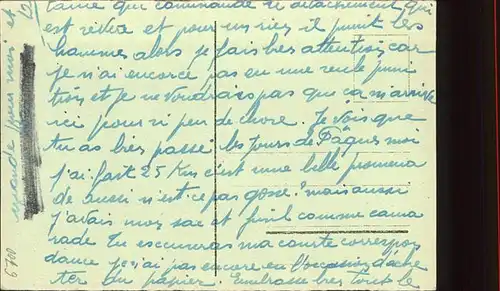 taine qui commande le détachement qui
est sévère et pour un rien il punit les
hommes alors je fais très attention car
je n'ai encore pas eu une seule puni
tion et je ne voudrais pas que ça m'arrive
ici pour si peu de chose. Je vois que
tu as bien passé les jours de Pâques moi
j'ai fait 25 Km c'est une belle promena
de aussi n'est ce pas gosse? mais aussi
j'avais mon sac et fusil comme cama
rade Tu excuseras ma courte correspon
dance je n'ai pas encore eu l'occasion d'ache
ter du papier. Embrasse bien tout le
6700